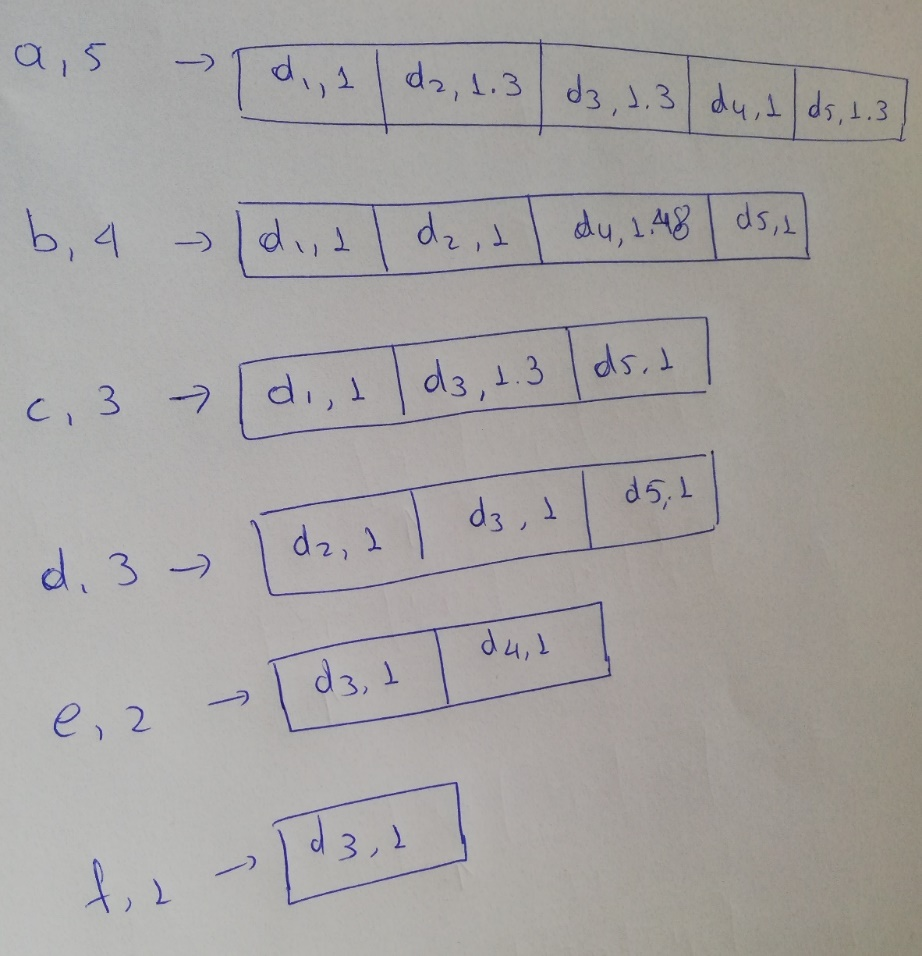 a, 5 → d1, 1 d2, 1.3 d3, 1.3 d4, 1 d5, 1.3
b, 4 → d1, 1 d2, 1 d4, 1.48 d5, 1
c, 3 → d1, 1 d3, 1.3 d5, 1
d, 3 → d2, 1 d3, 1 d5, 1
e, 2 → d3, 1 d4, 1
f, 1 → d3, 1